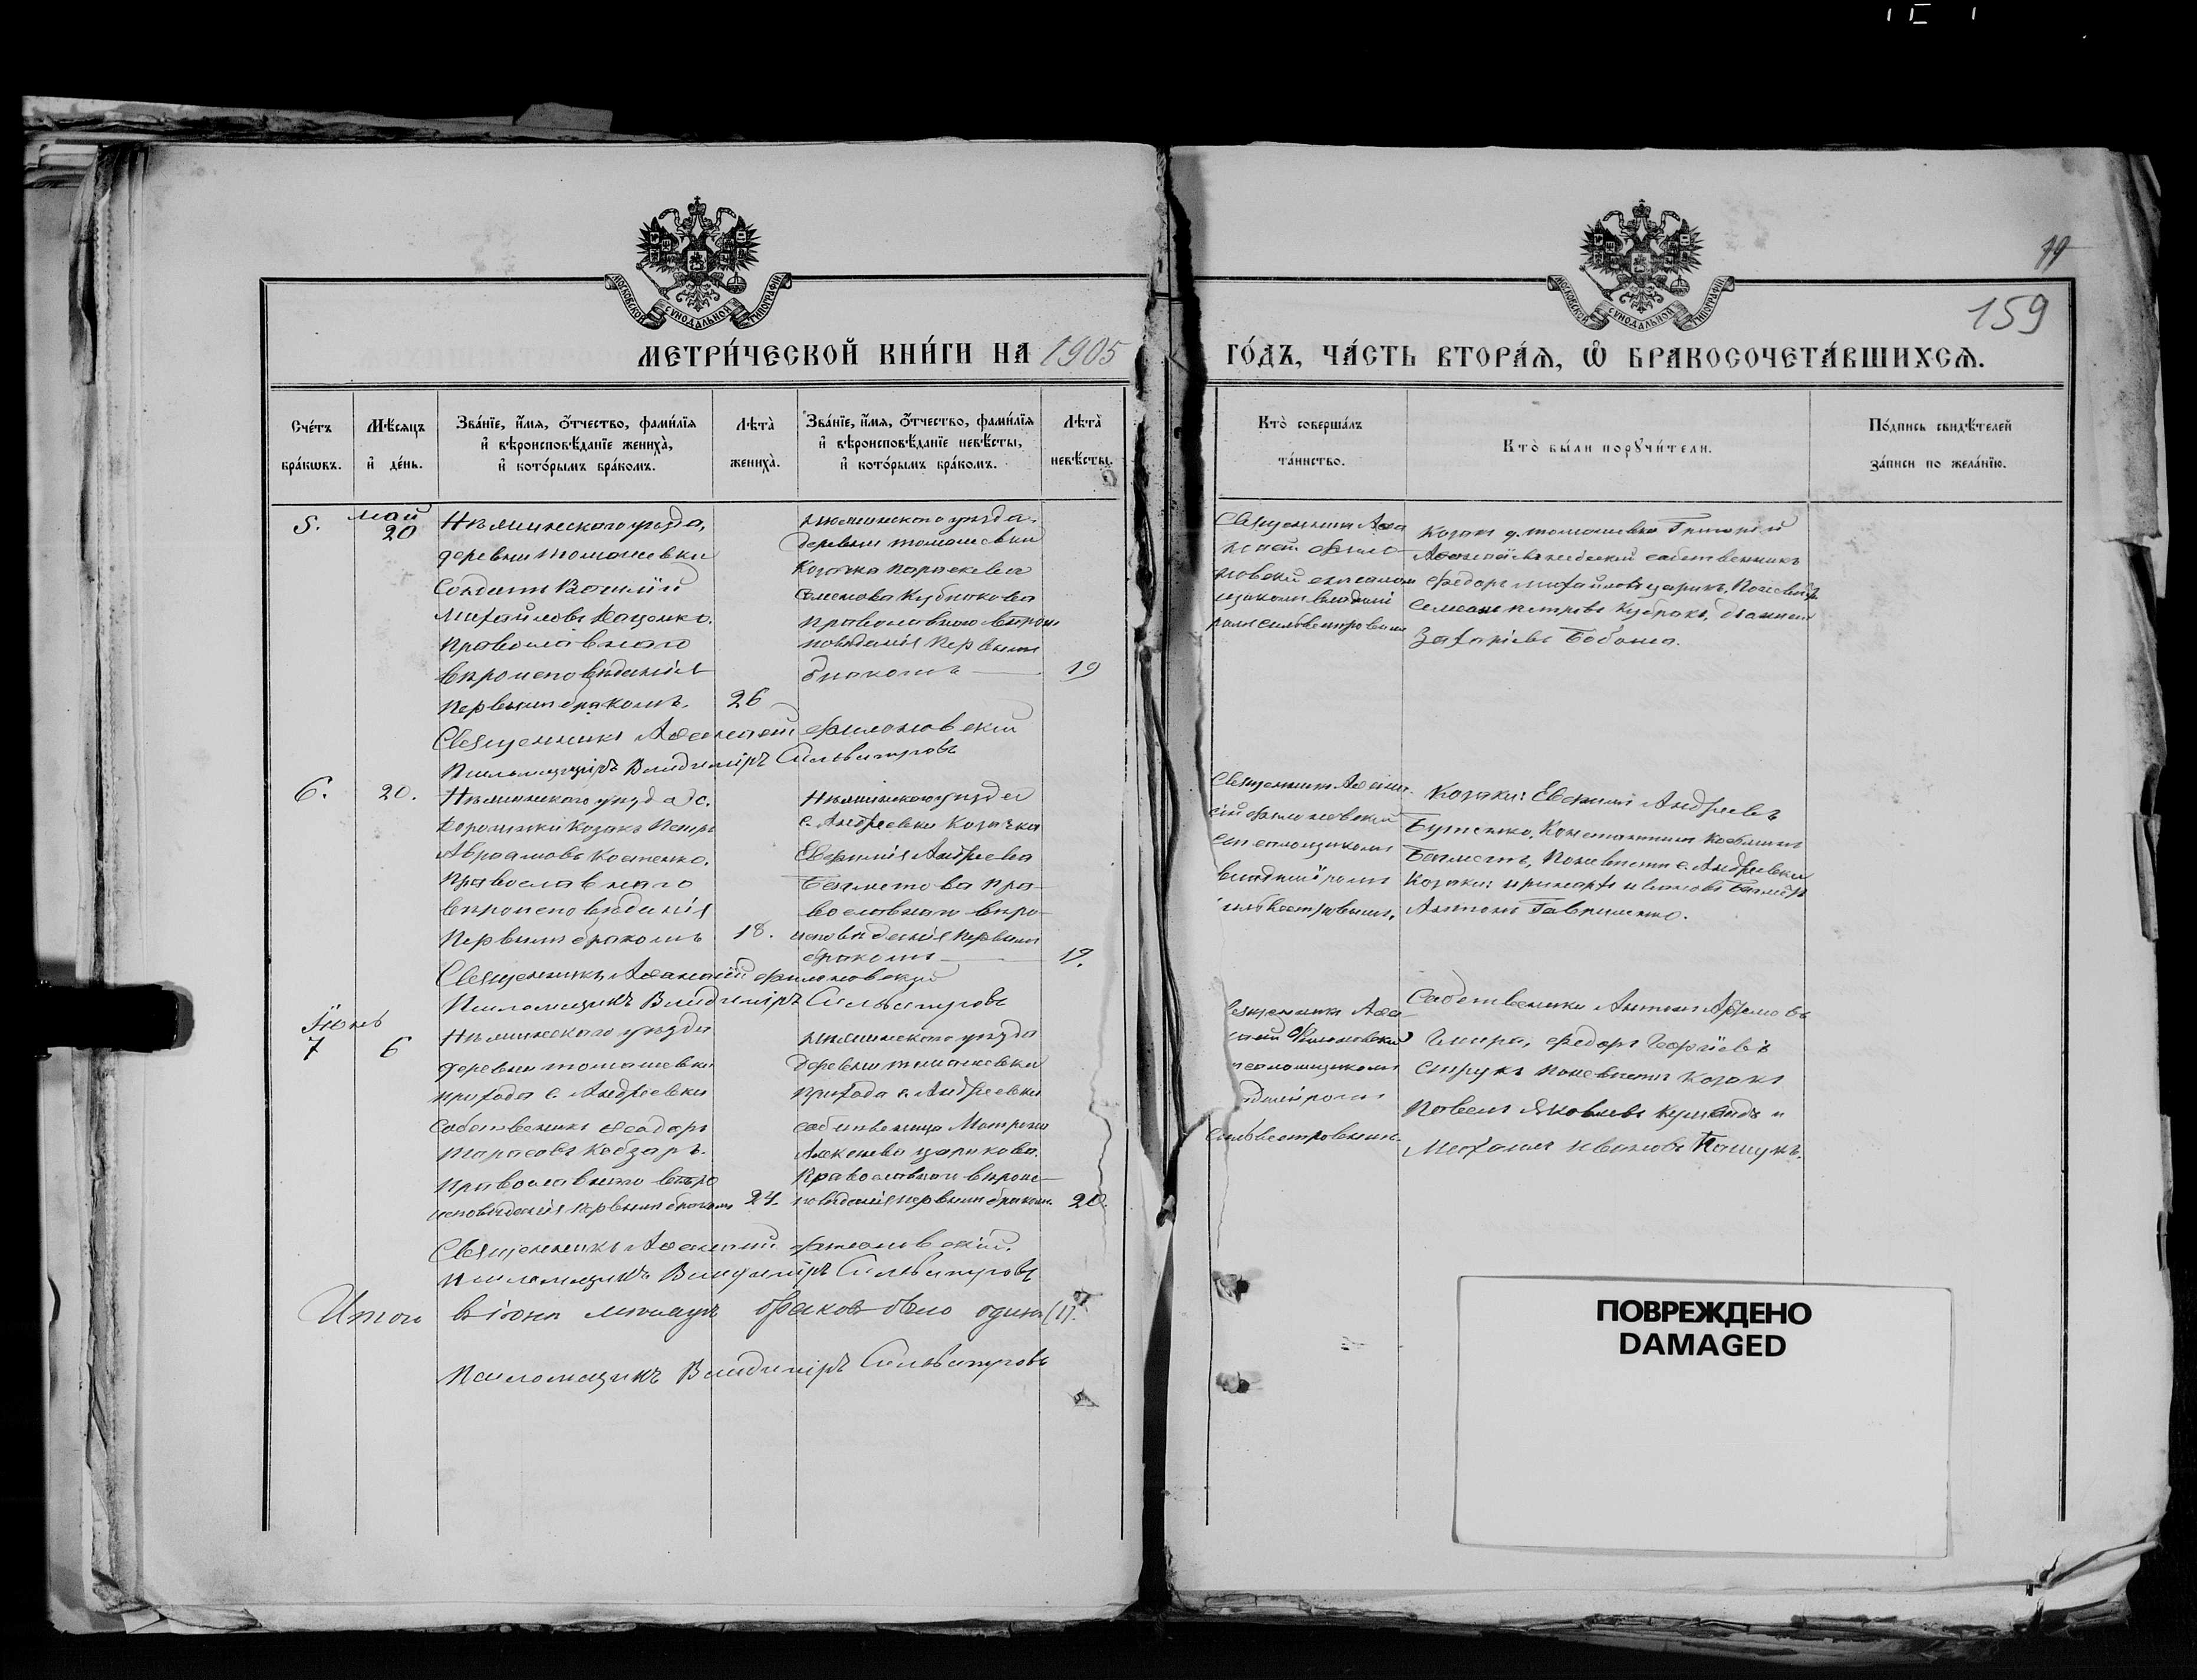 77
159
МОСКОВСКОЙ СѴНОДАЛЬНОЙ ТИПОГРАФІИ
МОСКОВСКОЙ СѴНОДАЛЬНОЙ ТИПОГРАФІИ
МЕТРИ́ЧЕСКОЙ КНИ́ГИ НА 1905 ГО́ДЪ, ЧА́СТЬ ВТОРА́Ѧ, Ѡ҆ БРАКОСОЧЕТА́ВШИХСѦ.
Сче́тъ
бра́кѡвъ.
Мѣ́сяцъ
и҆ де́нь.
Зва́нїе, и҆́мя, ѻ҆́тчество, фами́лїя
и҆ вѣроисповѣ́данїе жениха̀,
и҆ кото́рымъ бра́комъ.
Лѣта̀
жениха̀.
Зва́нїе, и҆́мя, ѻ҆́тчество, фами́лїя
и҆ вѣроисповѣ́данїе невѣ́сты,
и҆ кото́рымъ бра́комъ.
Лѣта̀
невѣ́сты.
Кто̀ соверша́лъ
та́инство.
Кто̀ бы́ли порꙋчи́тели.
По́дпись свидѣ́телей
за́писи по жела́нїю.
5.
май
20
Нѣжинскаго уѣзда,
деревни Томашевки
Солдатъ Василій
Михайловъ Даценко.
Православнаго
вѣроисповѣданія
первымъ бракомъ.
26
Нѣжинскаго уѣзда.
деревни Томашевки
Козачка Параскева
Семенова Кубракова
православнаго вѣроис
повѣданія первымъ
бракомъ
19
Священникъ Аѳа
насій Фило
новскій съ псалом
щикомъ Влади
ромъ Сильвестровымъ
Козакъ д. Томашевки Григорій
собственникъ
Федоръ Михайловъ Царикъ, По невѣстѣ
Семенъ Петровъ Кубракъ,
Захаріевъ Бобоша.
Священникъ Аѳанасій Филоновскій
Псаломщикъ Владиміръ Сильвестровъ
6.
20.
Нѣжинскаго уѣзда с.
Козакъ Петръ
Авраамовъ Костенко.
Православнаго
вѣроисповѣданія
Первымъ бракомъ
18.
Нѣжинскаго уѣзда
с. Андреевки Козачка
Евфимія Андреева
Багметова пра-
вославнаго вѣро-
исповѣданія первымъ
бракомъ
17.
Священникъ Аѳана-
сій Филоновскій
съ псаломщикомъ
Владиміромъ
Сильвестровымъ.
Козаки: Евфимій Андреевъ
Бутенко, Константинъ
Багметъ, По невѣстѣ с. Андреевки
Козаки: Ивановъ Багметъ
Антонъ Гавриленко.
Священникъ Аѳанасій Филоновскій
Псаломщикъ Владиміръ Сильвестровъ
Іюнь
7
6
Нѣжинскаго уѣзда
деревни Томашевки
прихода с. Андреевки
Собственникъ Феодоръ
Тарасовъ Кобзаръ.
православнаго вѣро
исповѣданія первымъ бракомъ
24.
Нѣжинскаго уѣзда
деревни Томашевки
прихода с. Андреевки
собственица Матрона
Царикова.
Православнаго вѣроис-
повѣданія первымъ бракомъ.
20.
Священникъ Аѳа-
насій Филоновскій
псаломщикомъ
Владиміромъ
Сильвестровымъ
Собственники Антонъ
Федоръ Георгіевъ
Струкъ По невѣстѣ Козаки
Павелъ Яковлевъ и
Ивановъ
Священникъ Аѳанасій Филоновскій.
Псаломщикъ Владиміръ Сильвестровъ
Итого въ іюнѣ мѣсяцѣ браковъ было одинъ (1).
Псаломщикъ Владиміръ Сильвестровъ
ПОВРЕЖДЕНО
DAMAGED